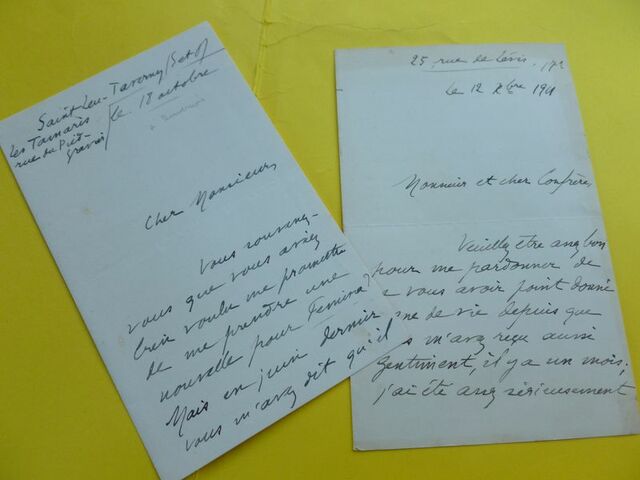 Saint-Leu-Taverny (S et O)
Les Tamaris
rue du Piéd-
gravier
le 18 octobre
Cher Monsieur,
Vous souvenez-
vous que vous aviez
bien voulu me promettre
de me prendre une
nouvelle pour Femina?
Mais en juin dernier
vous m'avez dit qu'il
25 rue de Lévis, 17e
Le 12 Xbre 1901
Monsieur et cher Confrère,
Veuillez être assez bon
pour me pardonner de
vous avoir point donné
de vie depuis que
m'avez reçu aussi
gentiment, il y a un mois;
j'ai été assez sérieusement